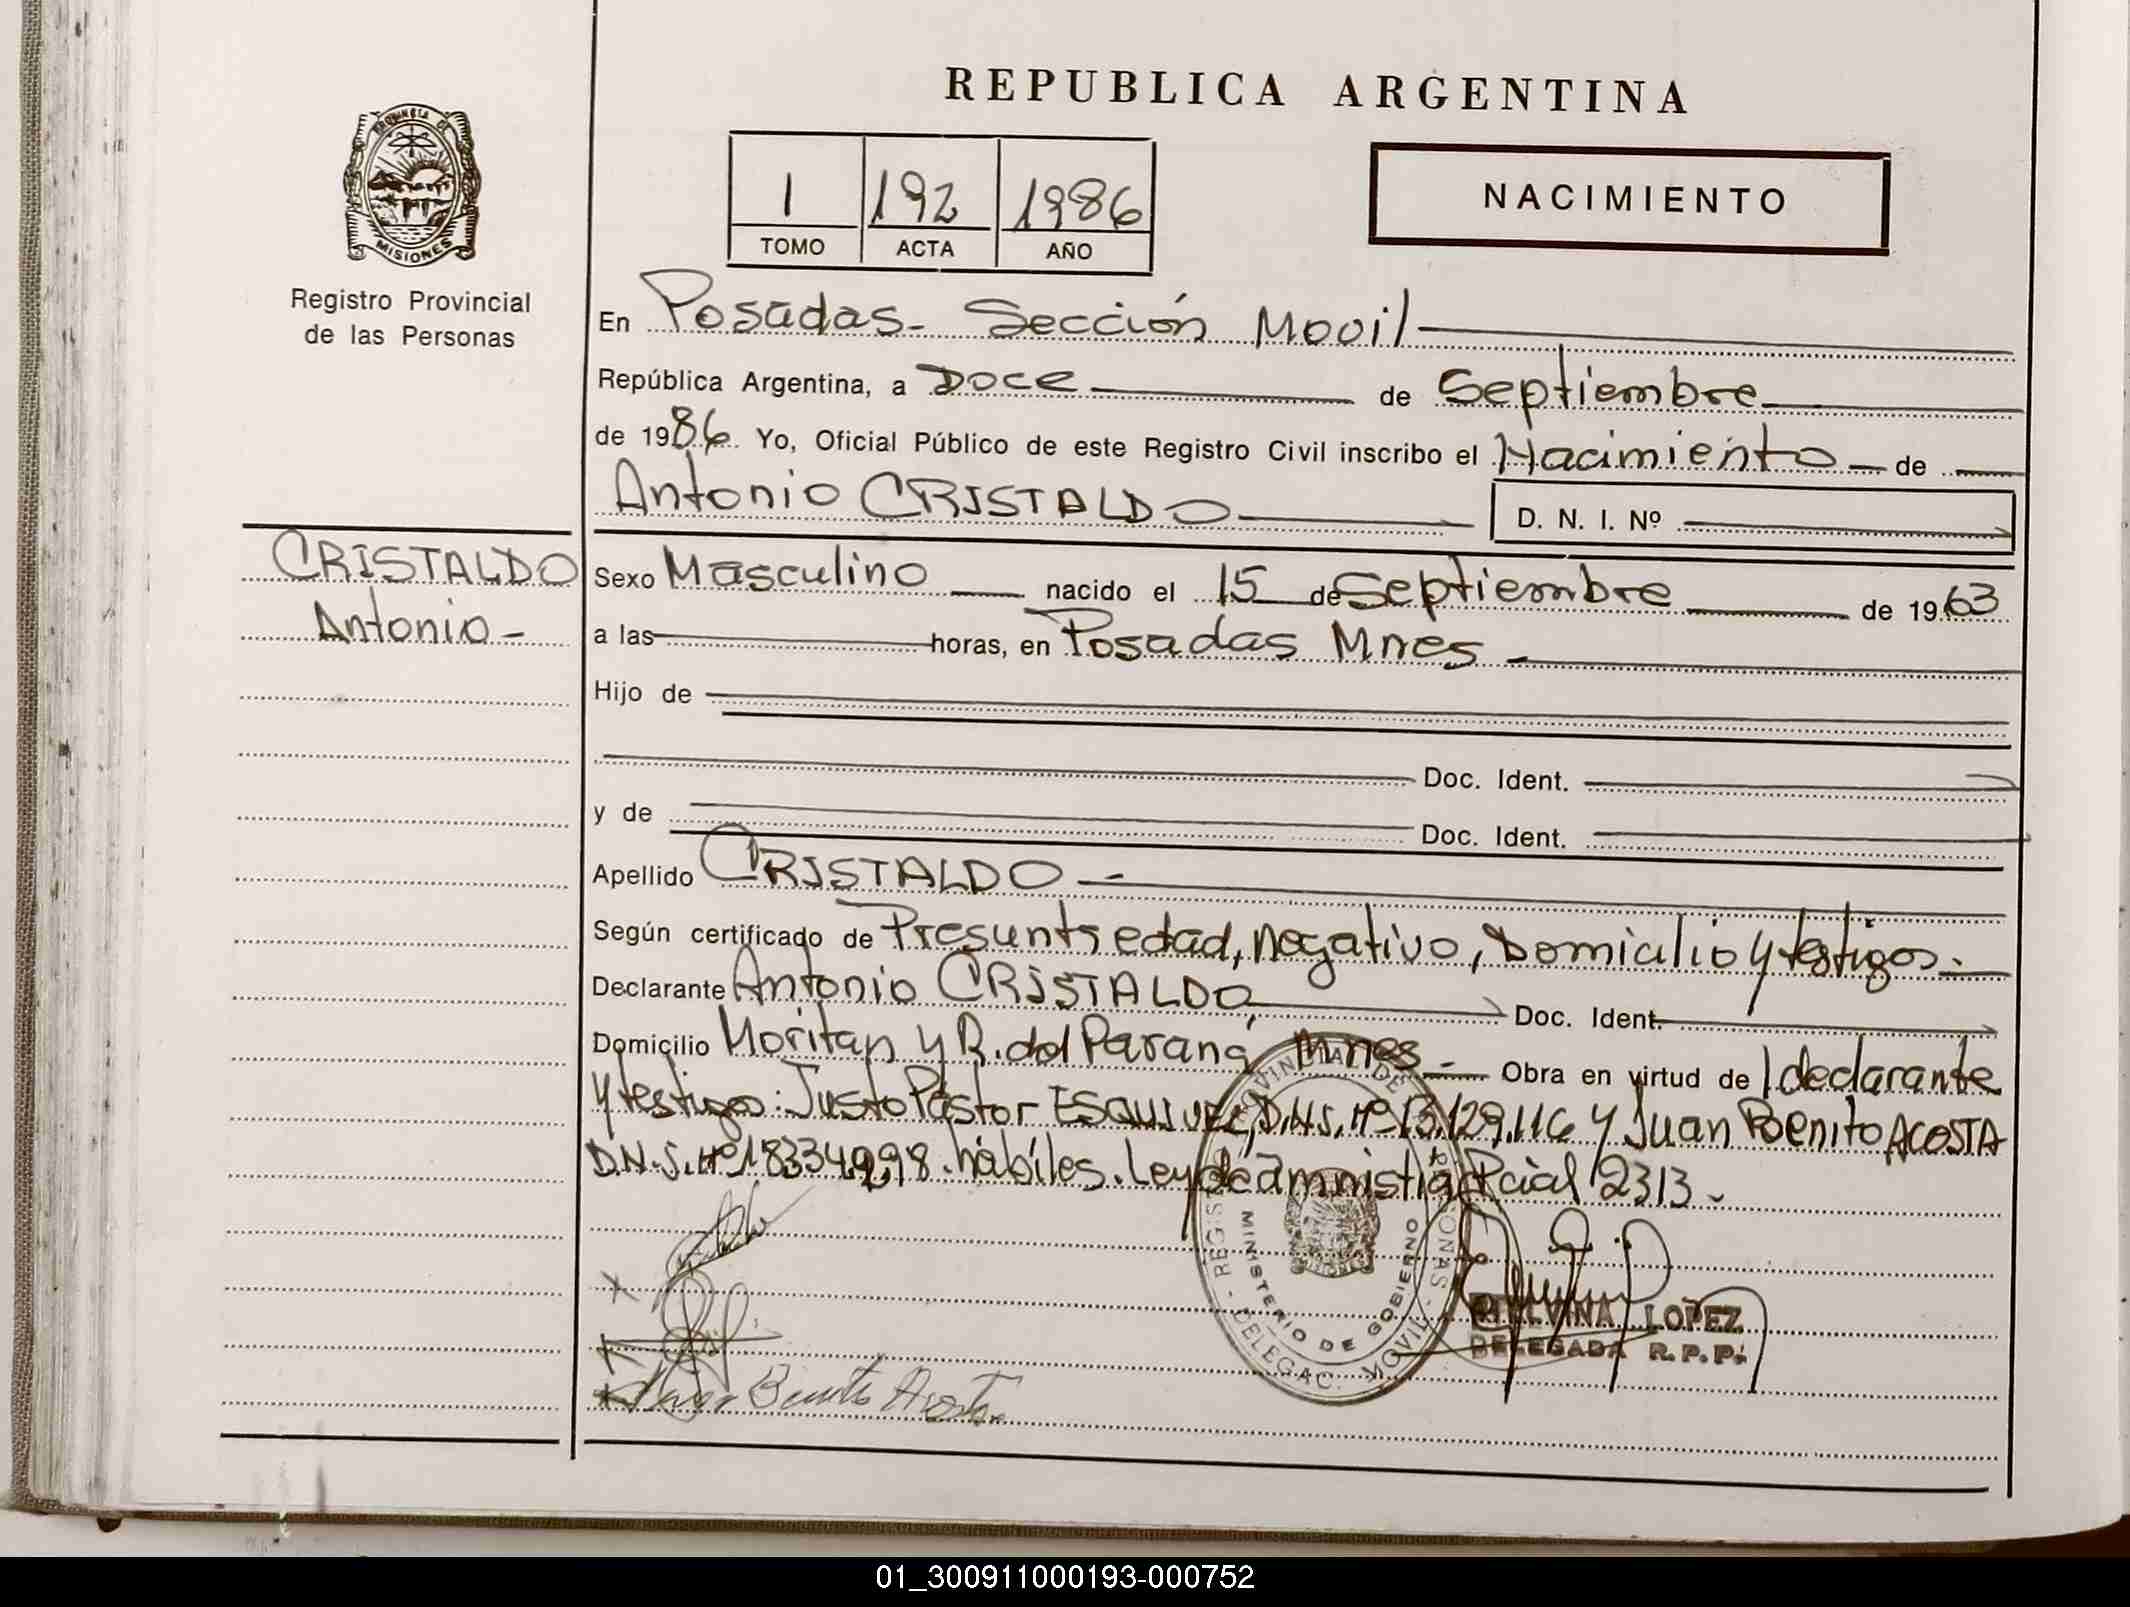 REPUBLICA ARGENTINA
PROVINCIA DE
MISIONES
Registro Provincial
de las Personas
1 192 1986
TOMO ACTA AÑO
NACIMIENTO
En Posadas - Sección Movil
República Argentina, a Doce de Septiembre
de 1986 Yo, Oficial Público de este Registro Civil inscribo el Nacimiento de
Antonio CRISTALDO D. N. I. Nº
CRISTALDO
Antonio -
Sexo Masculino nacido el 15 de Septiembre de 1963
a las horas, en Posadas Mnes -
Hijo de
Doc. Ident.
y de Doc. Ident.
Apellido CRISTALDO -
Según certificado de Presunts edad, negativo, Domicilio y testigos.-
Declarante Antonio CRISTALDO Doc. Ident.
Domicilio Moritan y R. del Paraná, Mnes - Obra en virtud de l declarante
y testigos: Justo Pastor ESQUIVEL, D.N.I. Nº 13.129.116 y Juan Benito ACOSTA
D.N.I. Nº 18334998. hábiles. Ley de amnistia Pcial 2313.-
MINISTERIO DE GOBIERNO
DELEGAC. MOVIL
Benito Acosta
LOPEZ
DELEGADA R.P.P.
01_300911000193-000752